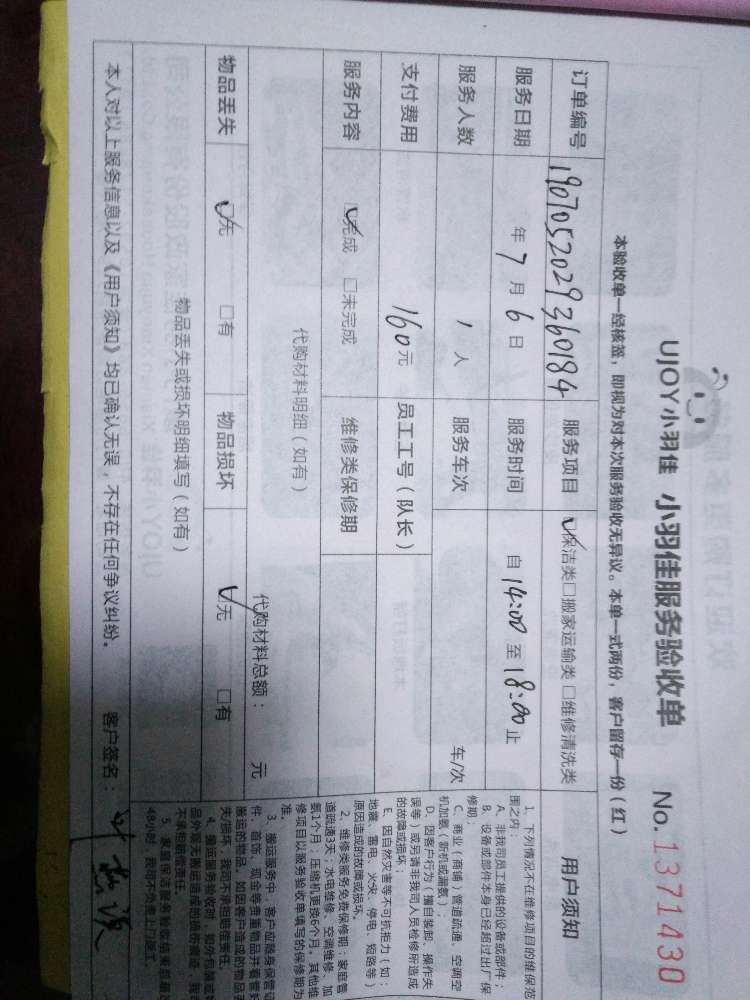 UJOY小羽佳 小羽佳服务验收单 No. 1371430
本验收单一经核签，即视为对本次服务验收无异议。本单一式两份，客户留存一份（红）
订单编号 19070520293 60184 服务项目 ☑保洁类□搬家运输类 □维修清洗类
服务日期 年 7 月 6 日 服务时间 自 14:00 至 18:00 止
服务人数 1 人 服务车次 车/次
支付费用 160 元 员工工号（队长）
服务内容 ☑完成 □未完成 维修类保修期
代购材料明细（如有）
代购材料总额： 元
物品丢失 ☑无 □有 物品损坏 ☑无 □有
物品丢失或损坏明细填写（如有）
本人对以上服务信息以及《用户须知》均已确认无误，不存在任何争议纠纷。 客户签名：
用户须知
1、下列情况不在维修项目的维保范
围之内：
A、非我司员工提供的设备或部件；
B、设备或部件本身已经超过出厂保
修期；
C、商业（商铺）管道疏通、空调空
机加氨（新机或漏氨）；
D、因客户行为（擅自装卸、操作失
误等）或另请非我司人员检修所造成
的故障或损坏；
E、因自然灾害等不可抗拒力（如：
地震、雷电、火灾、停电、短路等）
原因造成的故障或损坏。
2、维修类服务免费保修期：家庭管
道疏通3天；水电维修、空调维修、加
氨1个月，压缩机更换6个月，其他维
修项目以服务验收单填写的保修期为
准。
3、搬运服务中，客户应随身保管证
件、首饰、现金等贵重物品并看管好
搬运的物品，如因客户造成的物品丢
失/损坏，我司不承担赔偿责任。
4、搬运服务验收时，如外包装或
品外观无搬运造成的损伤痕迹，我
不承担赔偿责任。
5、家庭保洁服务验收结束
48小时，我司不负责